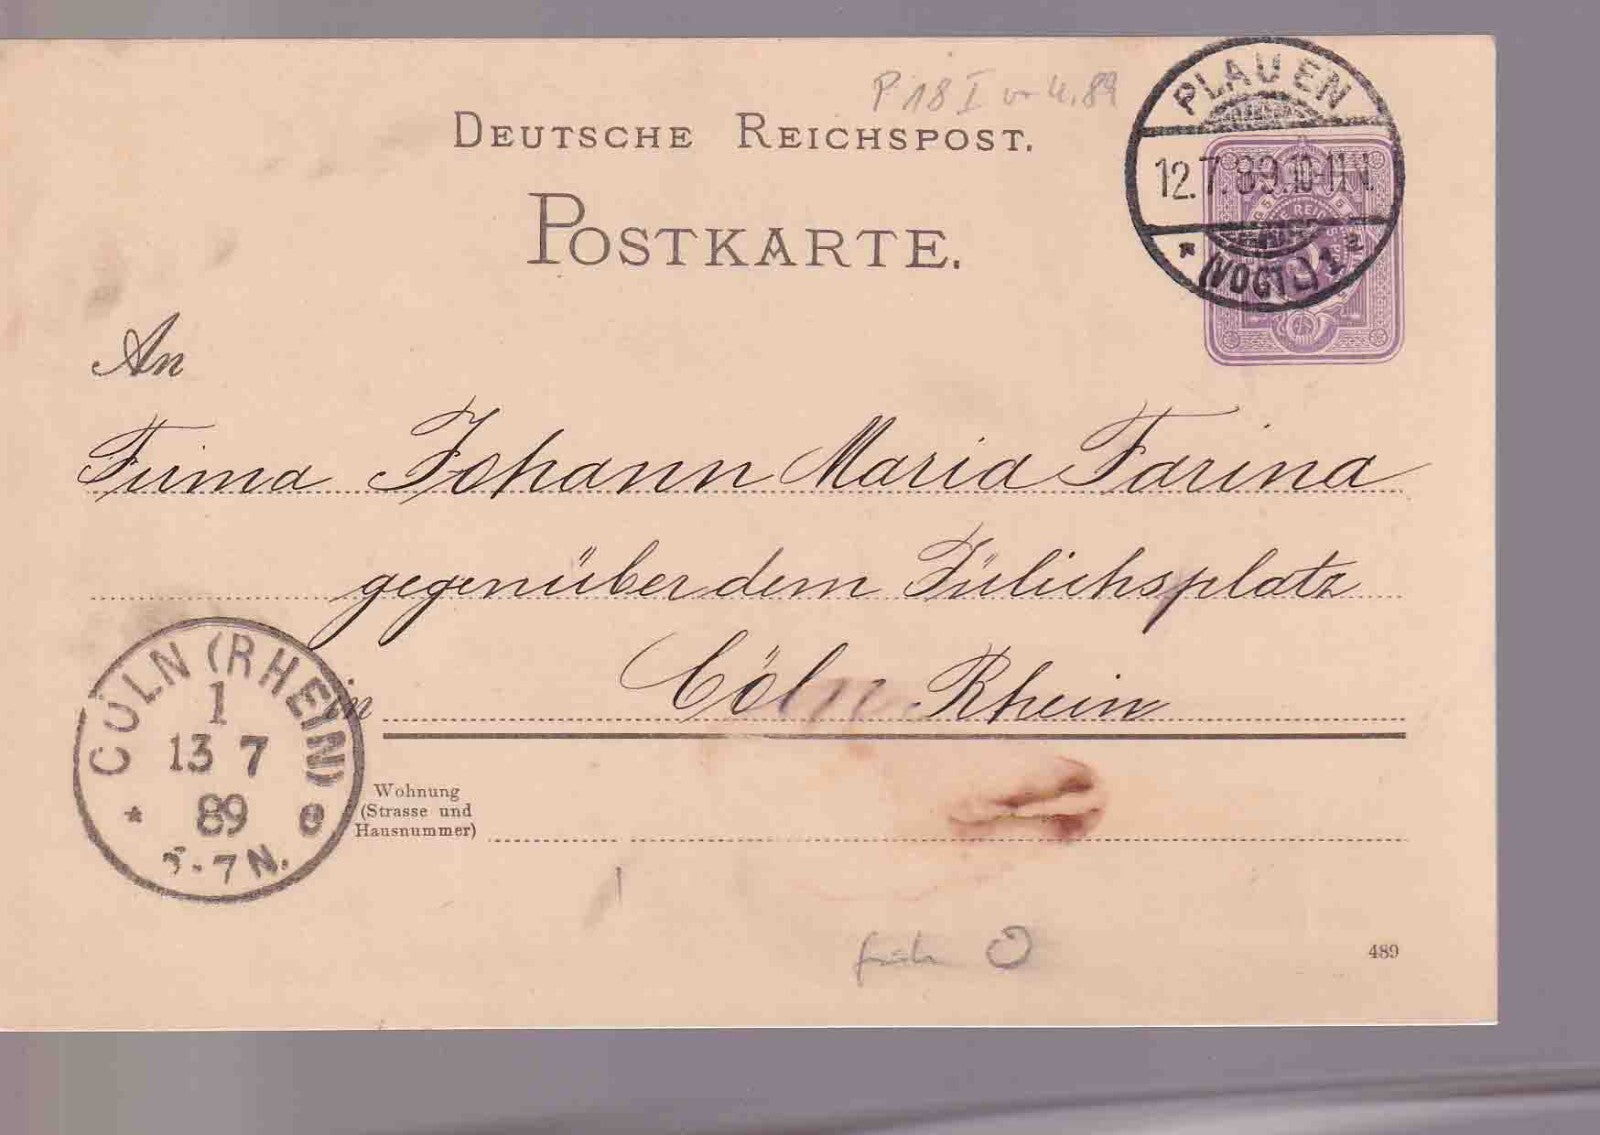 P 18 I v 4.89
DEUTSCHE REICHSPOST.
POSTKARTE.
PLAUEN
12.7.89.10-11N.
* (VOGTL) 1 a
An
Firma Johann Maria Farina
gegenüber dem Jülichsplatz
in Cöln Rhein
CÖLN (RHEIN)
1
13 7
89
* e
5-7 N.
Wohnung
(Strasse und
Hausnummer)
489